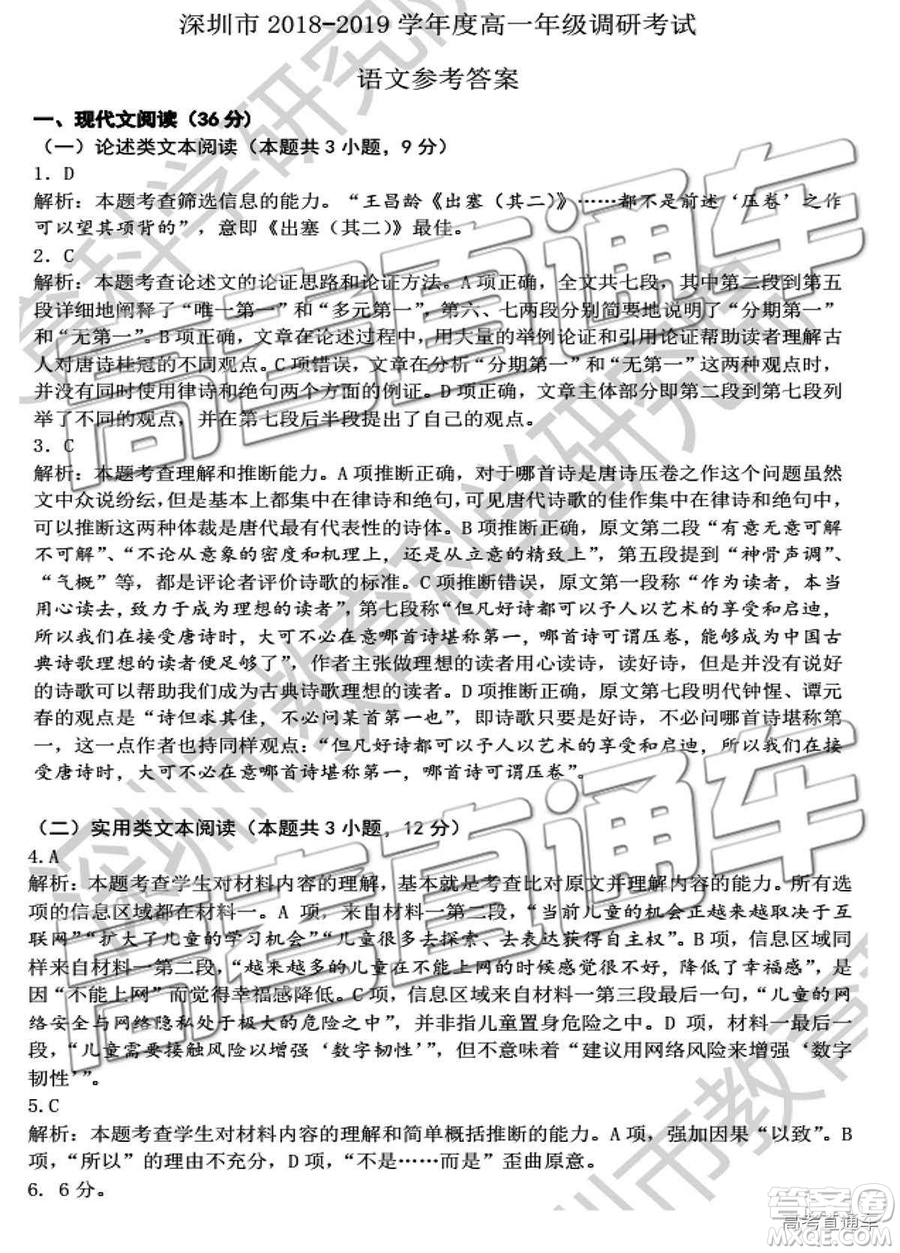 深圳市 2018-2019 学年度高一年级调研考试
语文参考答案
一、现代文阅读（36 分）
（一）论述类文本阅读（本题共 3 小题，9 分）
1．D
解析：本题考查筛选信息的能力。“王昌龄《出塞（其二）》……都不是前述‘压卷’之作
可以望其项背的”，意即《出塞（其二）》最佳。
2．C
解析：本题考查论述文的论证思路和论证方法。A 项正确，全文共七段，其中第二段到第五
段详细地阐释了“唯一第一”和“多元第一”，第六、七两段分别简要地说明了“分期第一”
和“无第一”。B 项正确，文章在论述过程中，用大量的举例论证和引用论证帮助读者理解古
人对唐诗桂冠的不同观点。C 项错误，文章在分析“分期第一”和“无第一”这两种观点时，
并没有同时使用律诗和绝句两个方面的例证。D 项正确，文章主体部分即第二段到第七段列
举了不同的观点，并在第七段后半段提出了自己的观点。
3．C
解析：本题考查理解和推断能力。A 项推断正确，对于哪首诗是唐诗压卷之作这个问题虽然
文中众说纷纭，但是基本上都集中在律诗和绝句，可见唐代诗歌的佳作集中在律诗和绝句中，
可以推断这两种体裁是唐代最有代表性的诗体。B 项推断正确，原文第二段“有意无意可解
不可解”、“不论从意象的密度和机理上，还是从立意的精致上”，第五段提到“神骨声调”、
“气概”等，都是评论者评价诗歌的标准。C 项推断错误，原文第一段称“作为读者，本当
用心读去，致力于成为理想的读者”，第七段称“但凡好诗都可以予人以艺术的享受和启迪，
所以我们在接受唐诗时，大可不必在意哪首诗堪称第一，哪首诗可谓压卷，能够成为中国古
典诗歌理想的读者便足够了”，作者主张做理想的读者用心读诗，读好诗，但并不是说读好
的诗歌可以帮助我们成为古典诗歌理想的读者。D 项推断正确，原文第七段明代钟惺、谭元
春的观点是“诗但求其佳，不必问某首第一也”，即诗歌只要是好诗，不必问哪首诗堪称第
一，这一点作者也持同样观点：“但凡好诗都可以予人以艺术的享受和启迪，所以我们在接
受唐诗时，大可不必在意哪首诗堪称第一，哪首诗可谓压卷”。
（二）实用类文本阅读（本题共 3 小题，12 分）
4.A
解析：本题考查学生对材料内容的理解，基本就是考查比对原文并理解内容的能力。所有选
项的信息区域都在材料一。A 项，来自材料一第二段，“当前儿童的机会正越来越取决于互
联网”“扩大了儿童的学习机会”“儿童很多去探索、去表达、去获得自主权”。B 项，信息区域同
样来自材料一第二段，“越来越多的儿童在不能上网的时候感觉很糟糕，降低了幸福感”，是
因“不能上网”而觉得幸福感降低。C 项，信息区域来自材料一第三段最后一句，“儿童的网
络安全与网络隐私处于极大的危险之中”，并非指儿童置身危险之中。D 项，材料一最后一
段，“儿童需要接触风险以增强‘数字韧性’”，但不意味着“建议用网络风险来增强‘数字
韧性’”。
5.C
解析：本题考查学生对材料内容的理解和简单概括推断的能力。A 项，强加因果“以致”。B
项，“所以”的理由不充分，D 项，“不是……而是”歪曲原意。
6. 6 分。
深圳市教育科学研究院
高考直通车
答案圈
高考直通车
MXQE.COM